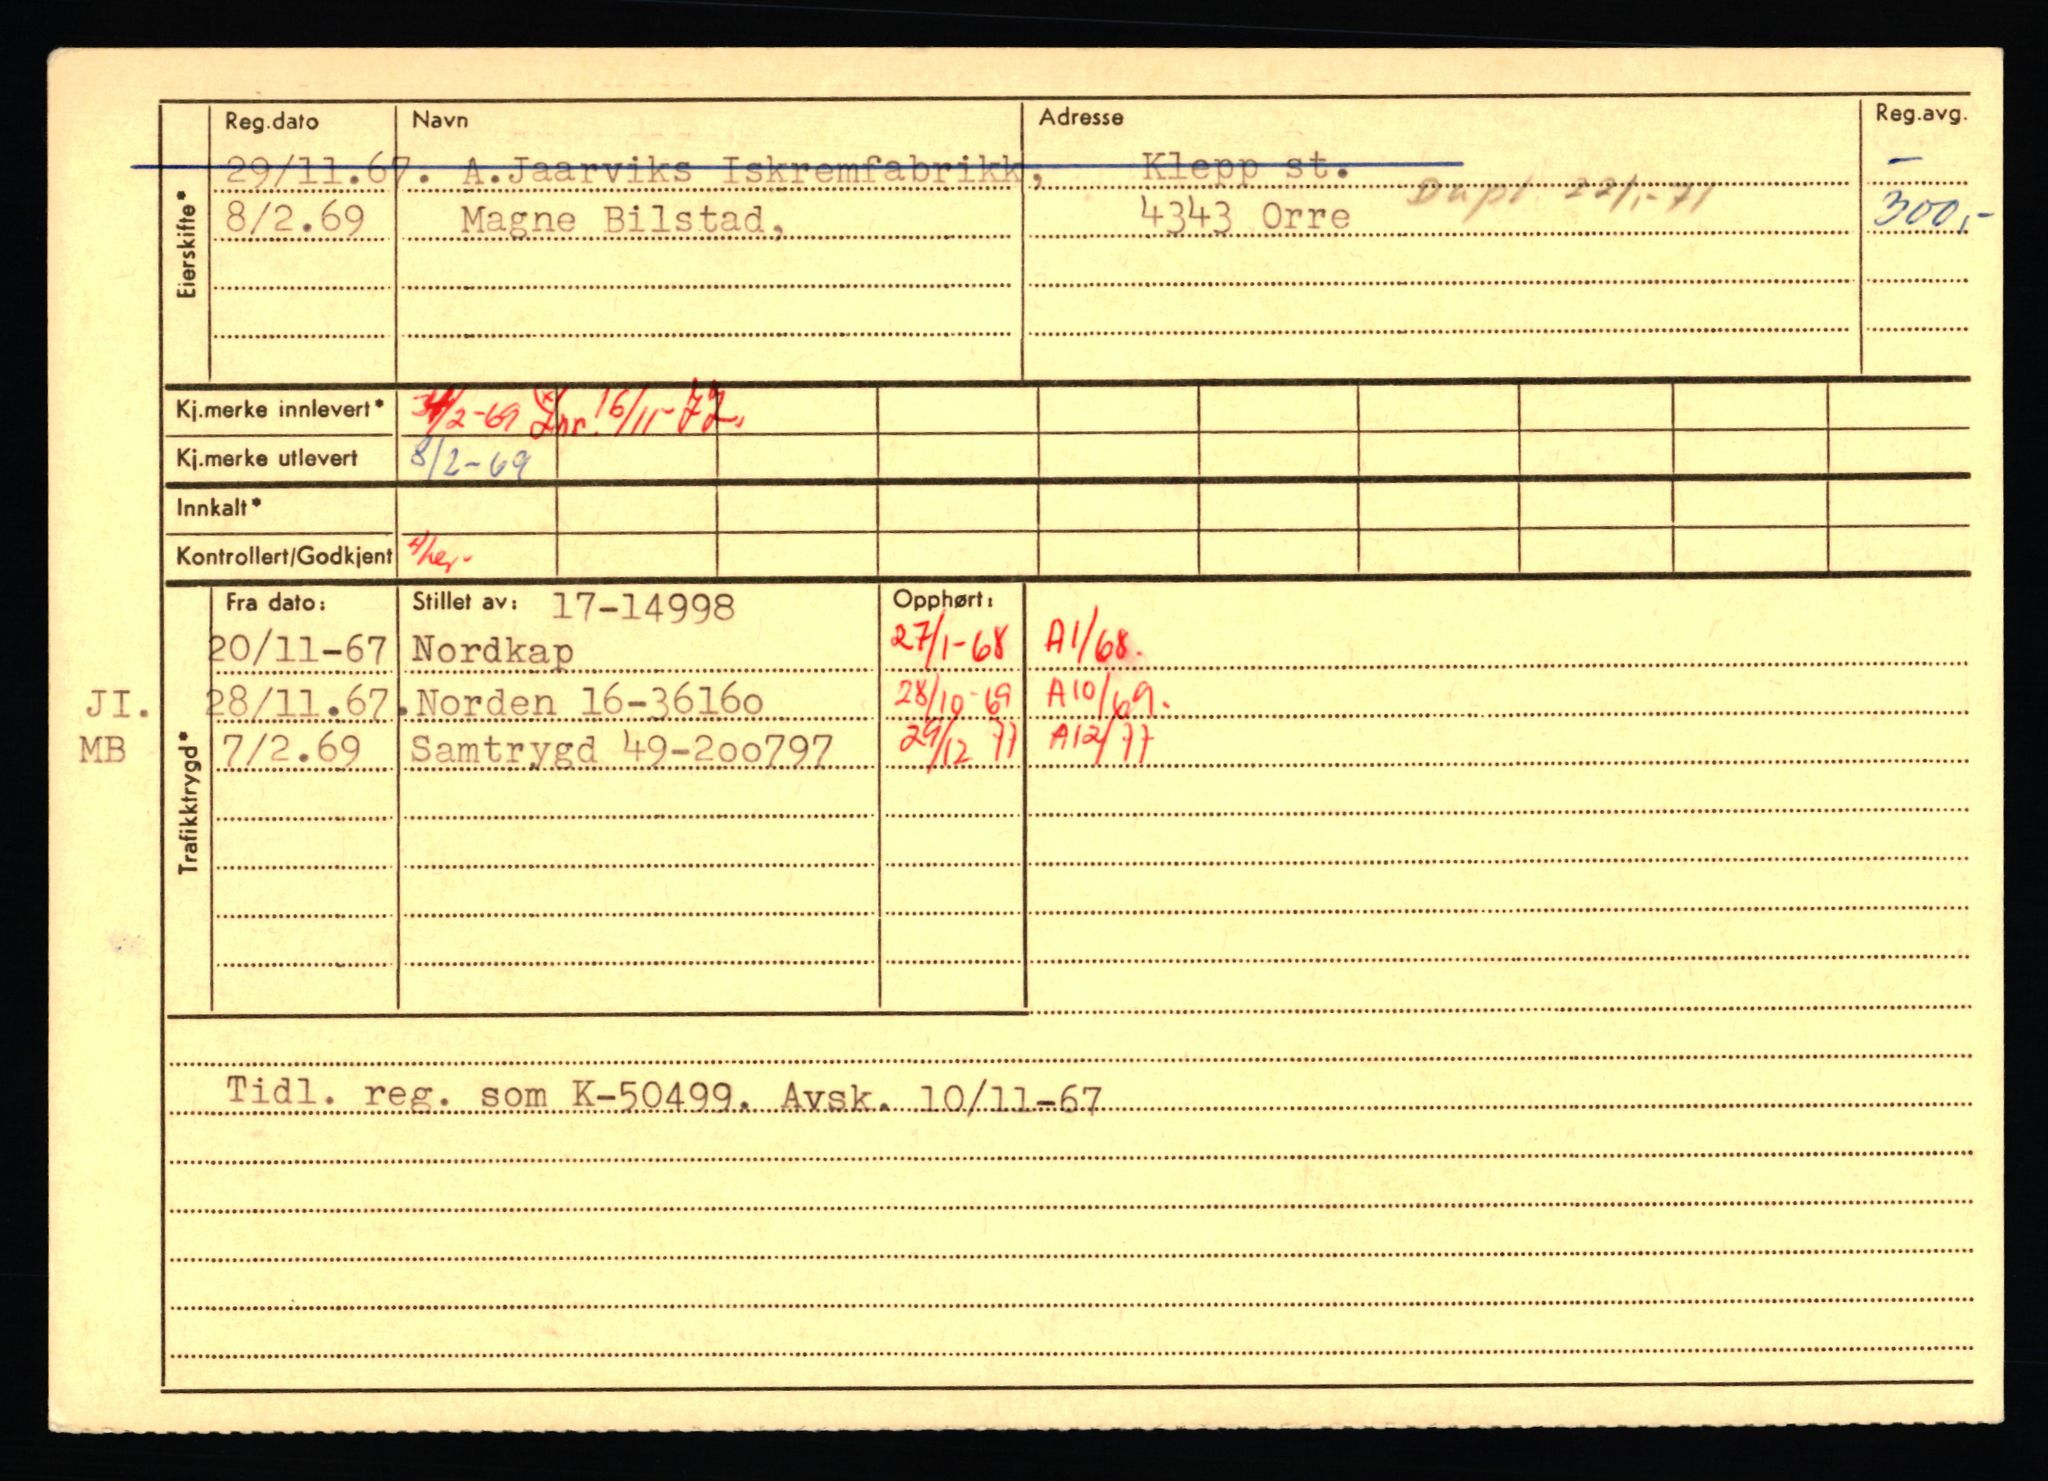 Reg.dato Navn Adresse Reg.avg.
29/11.67. A.Jaarviks Iskremfabrikk, Klepp st. —
Dupl 22/1-71
8/2.69 Magne Bilstad, 4343 Orre 300,-
Eierskifte*
Kj.merke innlevert* /2-69 16/11-72.
Kj.merke utlevert 8/2-69
Innkalt*
Kontrollert/Godkjent
Fra dato: Stillet av: 17-14998 Opphørt:
20/11-67 Nordkap 27/1-68 A1/68.
JI. 28/11.67. Norden 16-3616o 28/10-69 A10/69.
MB 7/2.69 Samtrygd 49-2oo797 29/12 77 A12/77
Trafikktrygd*
Tidl. reg. som K-50499. Avsk. 10/11-67